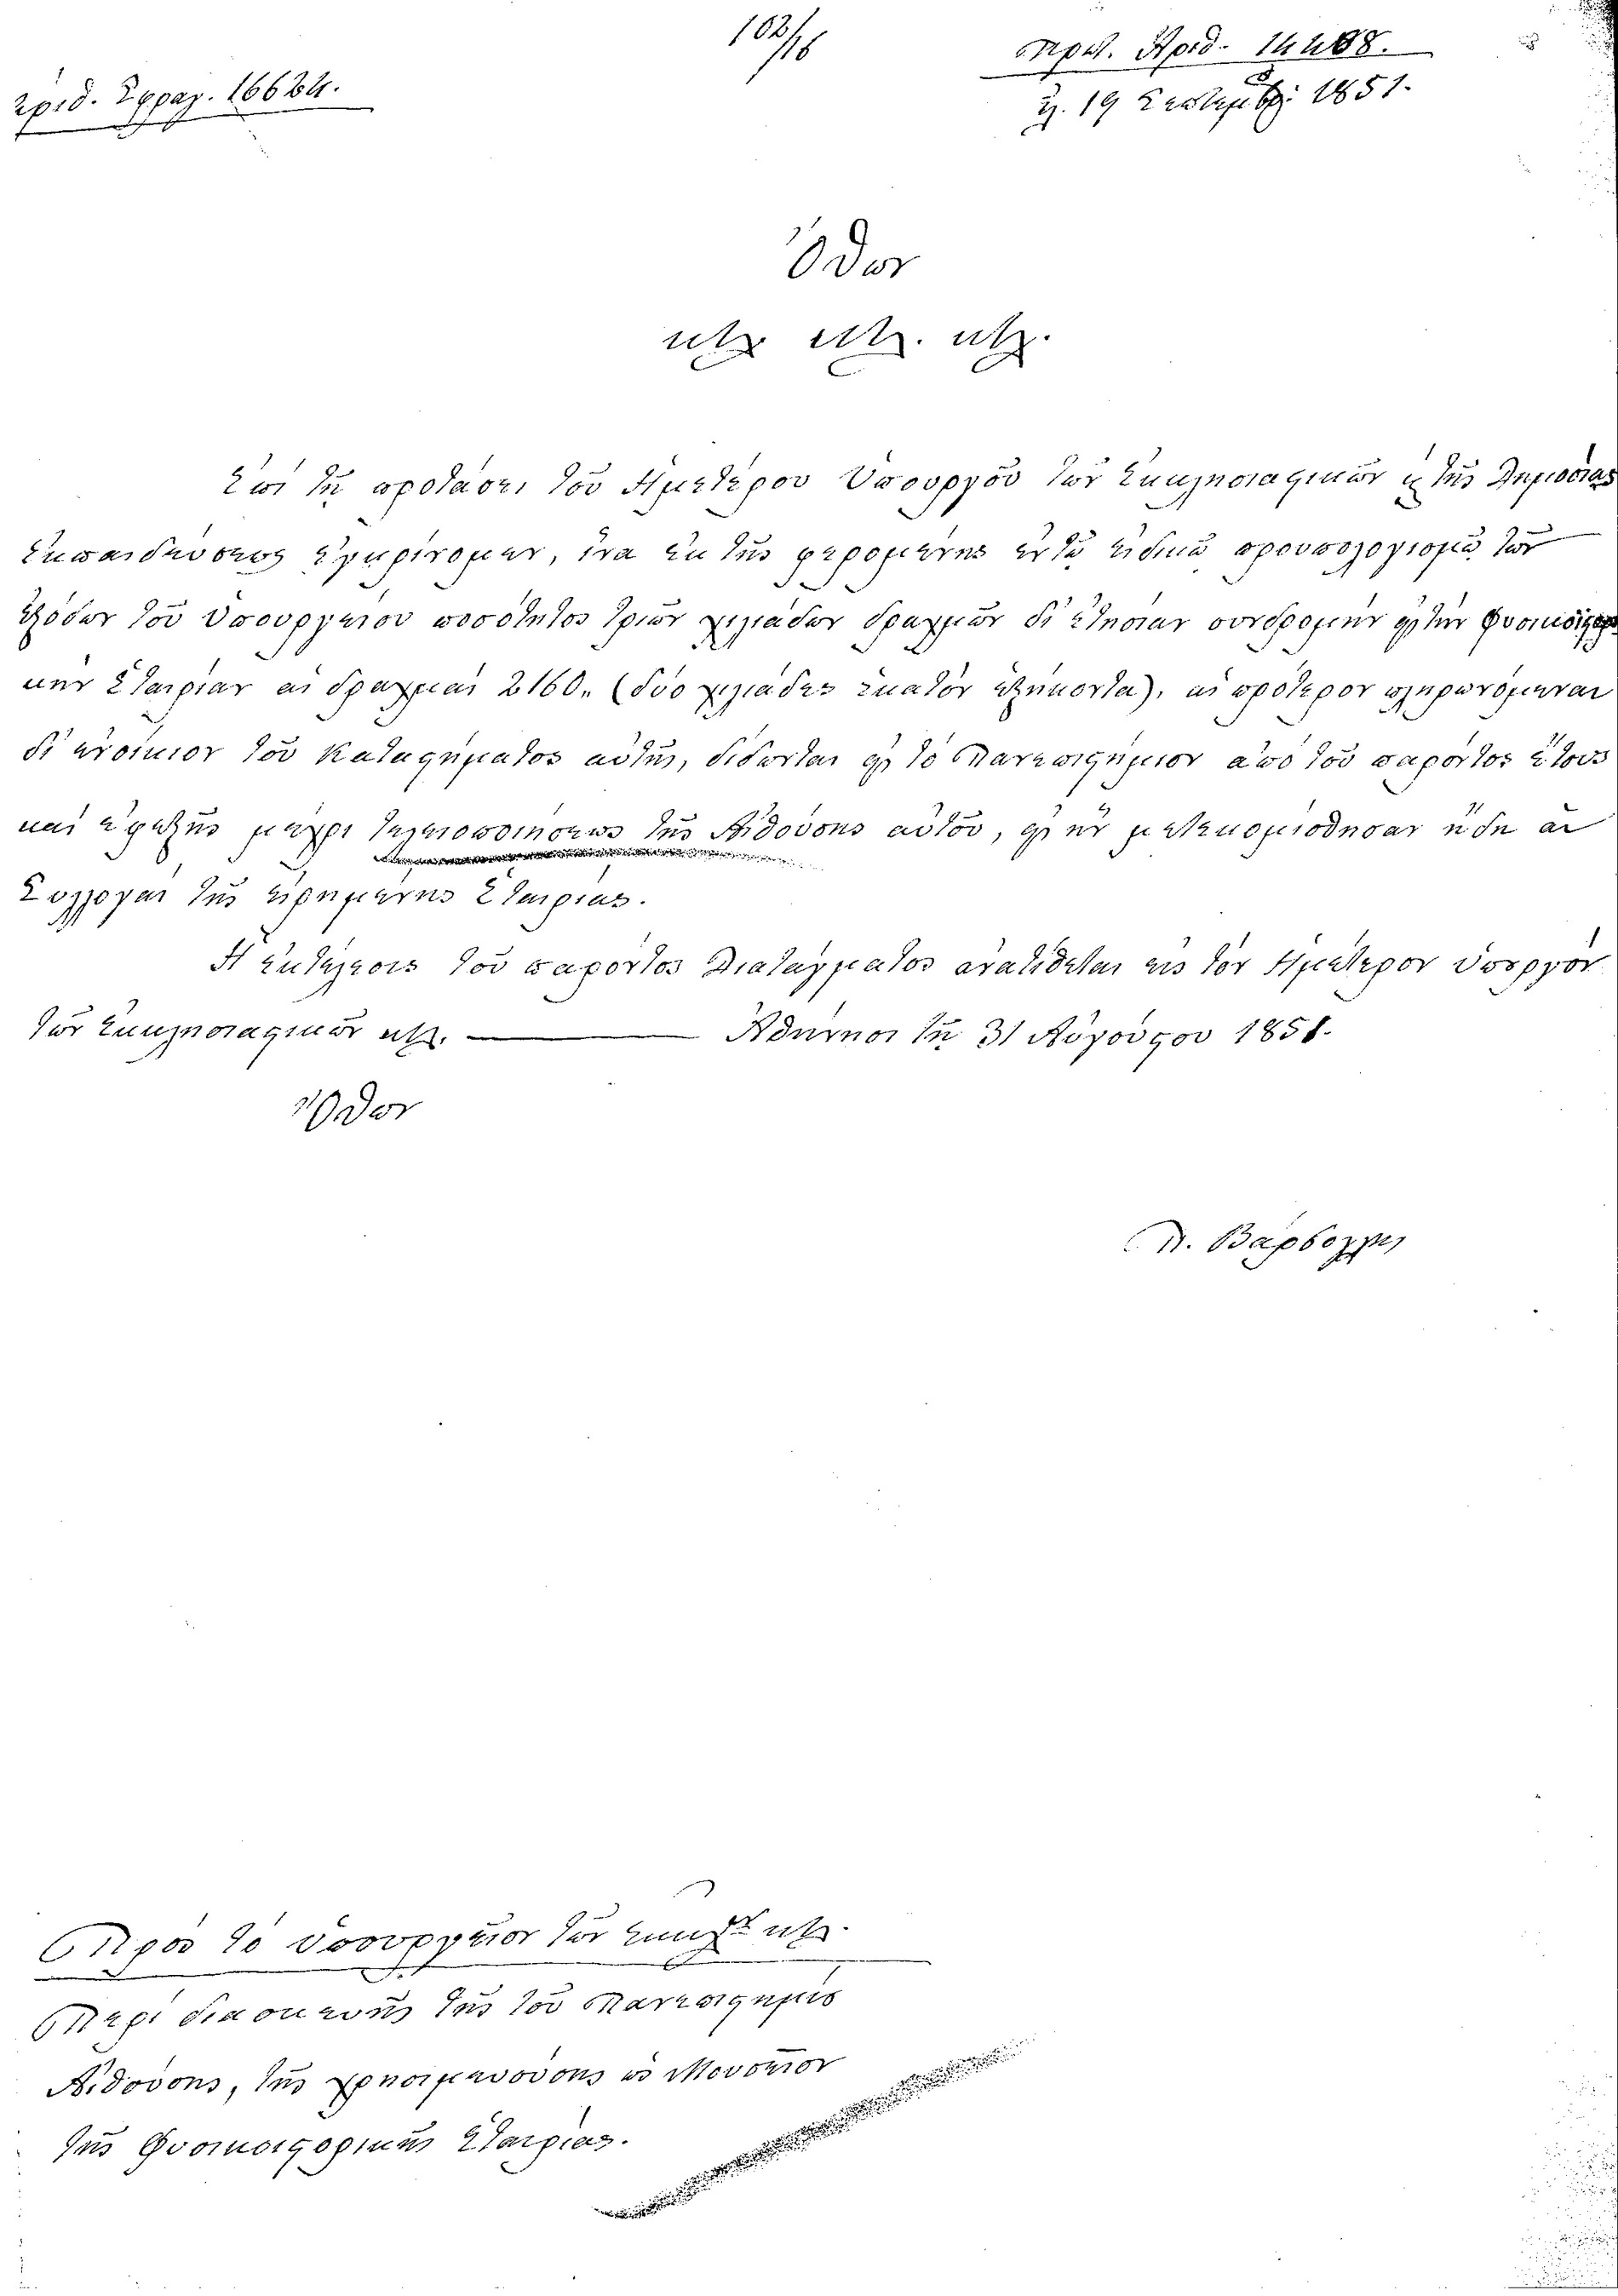 102/16
ἀριθ. Σφραγ. 16624.
Πρωτ. Ἀριθ. 14488.
τῇ 19 Σεπτεμβρ: 1851.
Ὄθων
κτλ κτλ. κτλ.
Ἐπὶ τῇ προτάσει τοῦ Ἡμετέρου Ὑπουργοῦ τῶν Ἐκκλησιαστικῶν καὶ τῆς Δημοσίας
ἐκπαιδεύσεως ἐγκρίνομεν, ἵνα ἐκ τῆς φερομένης ἐν τῷ εἰδικῷ προϋπολογισμῷ τῶν
ἐξόδων τοῦ Ὑπουργείου ποσότητος τριῶν χιλιάδων δραχμῶν δι' ἐτησίαν συνδρομὴν εἰς τὴν Φυσικοϊστορι
κὴν Ἑταιρίαν αἱ δραχμαὶ 2160,, (δύο χιλιάδες ἑκατὸν ἑξήκοντα), αἱ πρότερον πληρωνόμεναι
δι' ἐνοίκιον τοῦ καταστήματος αὐτῆς, δίδωνται εἰς τὸ Πανεπιστήμιον ἀπὸ τοῦ παρόντος ἔτους
καὶ ἐφεξῆς μέχρι τελειοποιήσεως τῆς Αἰθούσης αὐτοῦ, εἰς ἣν μετεκομίσθησαν ἤδη αἱ
Συλλογαὶ τῆς εἰρημένης Ἑταιρίας.
Ἡ ἐκτέλεσις τοῦ παρόντος Διατάγματος ἀνατίθεται εἰς τὸν Ἡμέτερον Ὑπουργὸν
τῶν Ἐκκλησιαστικῶν κτλ. Ἀθήνησι τῇ 31 Αὐγούστου 1851.
Ὄθων
Π. Βάρβογλης
Πρὸς τὸ Ὑπουργεῖον τῶν Ἐκκλ<sup>κῶν</sup> κτλ.
Περὶ διασκευῆς τῆς τοῦ Πανεπιστημίου
Αἰθούσης, τῆς χρησιμευούσης ὡς Μουσεῖον
τῆς Φυσικοϊστορικῆς Ἑταιρίας.